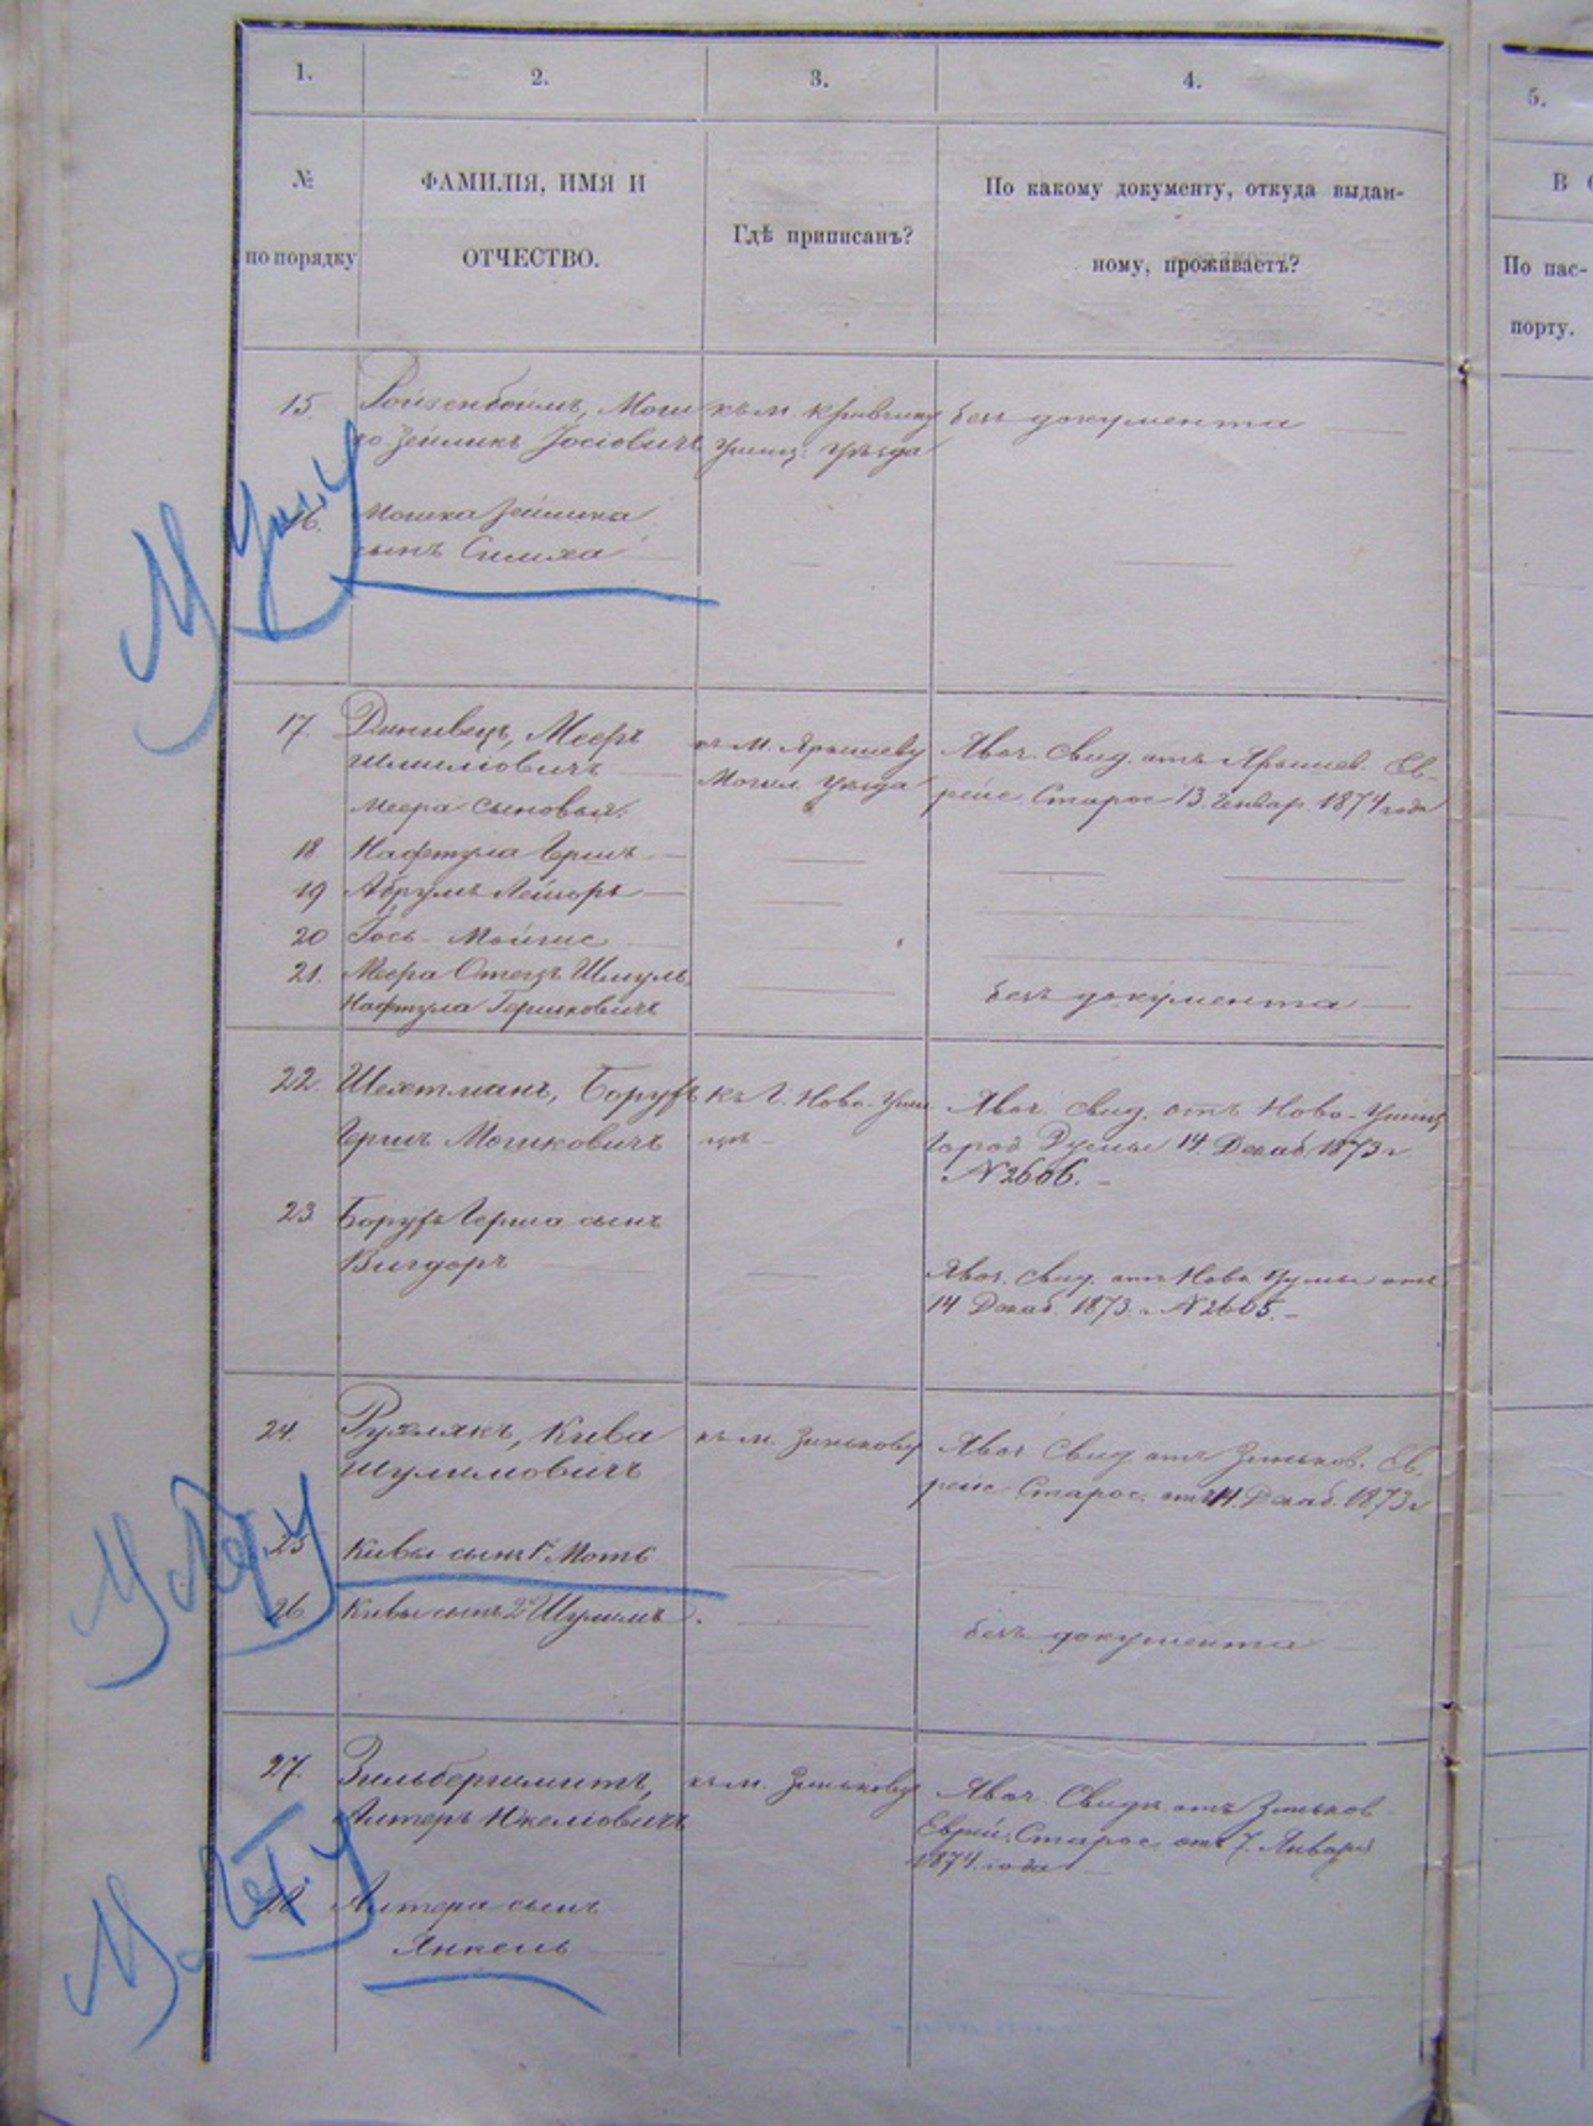 1.
2.
3.
4.
5.
№
по порядку
ФАМИЛІЯ, ИМЯ И
ОТЧЕСТВО.
Гдѣ приписанъ?
По какому документу, откуда выдан-
ному, проживаетъ?
В
По пас-
порту.
15.
Ройзенбоймъ, Мош
ко Зейликъ Іосіовичъ
къ м. Кривчику
Ушиц. Уѣзда
безъ документа
16.
Мошка Зейлика
сынъ Симха
17.
Динивецъ, Мееръ
Шмиліовичъ
къ М. Ярышеву
Могил. Уѣзда
Явоч. Свид. отъ Ярышев. Ев-
рейс. Старос 13. Генвар. 1874 года
Меера сыновья:
18
Нафтула Гершъ
19
Абрумъ Лейзоръ
20
Іось-Мойше
21.
Меера Отецъ Шмуль
Нафтула Гершковичъ
безъ документа
22.
Шехтманъ, Борухъ
Гершъ Мошковичъ
Къ Г. Ново-Уши
цѣ
Явоч. Свид. отъ Ново-Ушиц
Город Думы 14. Декаб. 1873 г
№ 2606.
23
Борухъ Герша сынъ
Вигдоръ
Явоч. Свид. отъ Ново Думы отъ
14 Декаб. 1873. г № 2605.
24.
Рухлякъ, Кива
Шулимовичъ
къ м. Зинькову
Явоч Свид отъ Зиньков. Ев.
рейс Старос. отъ 14. Декаб. 1873 г
25
Кивы сынъ 1й Моть
26
Кивы сынъ 2й Шулимъ
безъ документа
27.
Зильбершмитъ,
Алтеръ Юкеліовичъ
къ м. Зинькову
Явоч. Свидѣ. отъ Зиньков
Еврей. Старос отъ 7. Января
1874. года
28
Алтера сынъ
Янкель